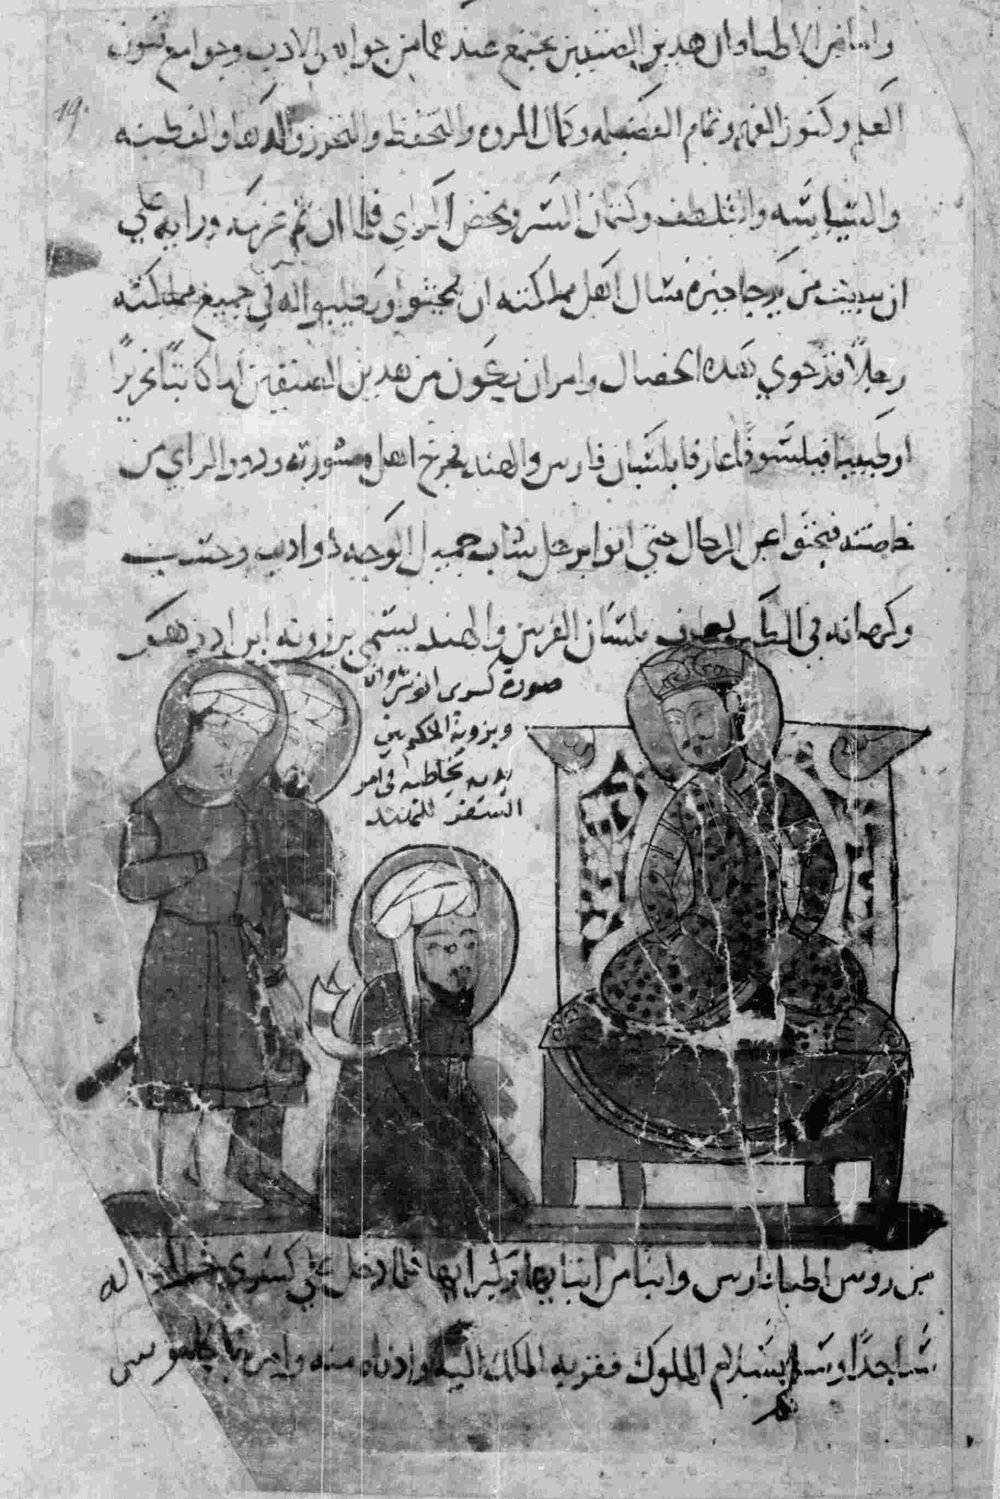 واما من الاطباء وان هذين الصنفين يجتمع عندهما من جوامع الادب وجوامع فنون
19.
العلم وكنوز الفهم وتمام الفضيله وكمال المروه والتحفظ والتحرز والدها والفطنه
والسياسه والتلطف وكتمان السر ومحض الراي فلما ان تم عزمه ورايه علي
ان يبعث من يرجا خيره سال اهل مملكته ان يبحثوا ويطلبوا له في جميع مملكته
رجلاً قد حوي هذه الخصال وامر ان يكون من هدين الصنفين اما كاتبًا نحريرًا
او طبيبا فيلسوفًا عارفا بلسان فارس والهند فخرج اهل مشورته ودوو الراي من
خاصته فبحثوا عن الرجال حتي اتوا برجل شاب جميل الوجه ذو ادب وحسب
في الطب يعرف بلسان الفرس والهند يسمي برزويه ابن ادرهر
صورة كسرى انوشروان
وبرزويه الحكيم بين
يديه يخاطبه في امر
السفر للهند
من روس اطبا فارس وابنا من ابنايها فلما دخل علي كسري له
ساجدًا وسلم بسلام الملوك فقربه الملك اليه وادناه منه وامره بالجلوس